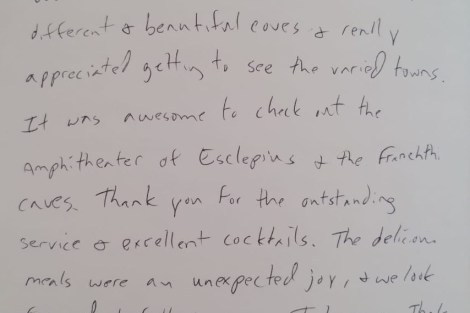 different & beautiful coves & really
appreciated getting to see the varied towns.
It was awesome to check out the
Amphitheater of Esclepius & the Franchthi
caves. Thank you for the outstanding
service & excellent cocktails. The delicious
meals were an unexpected joy, & we look